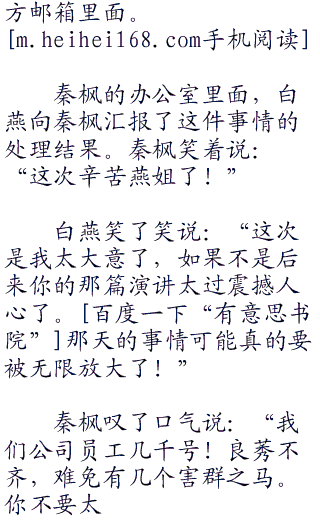 方邮箱里面。
[m.heihei168.com手机阅读]
秦枫的办公室里面，白
燕向秦枫汇报了这件事情的
处理结果。秦枫笑着说：
“这次辛苦燕姐了！”
白燕笑了笑说：“这次
是我太大意了，如果不是后
来你的那篇演讲太过震撼人
心了。[百度一下“有意思书
院”]那天的事情可能真的要
被无限放大了！”
秦枫叹了口气说：“我
们公司员工几千号！良莠不
齐，难免有几个害群之马。
你不要太